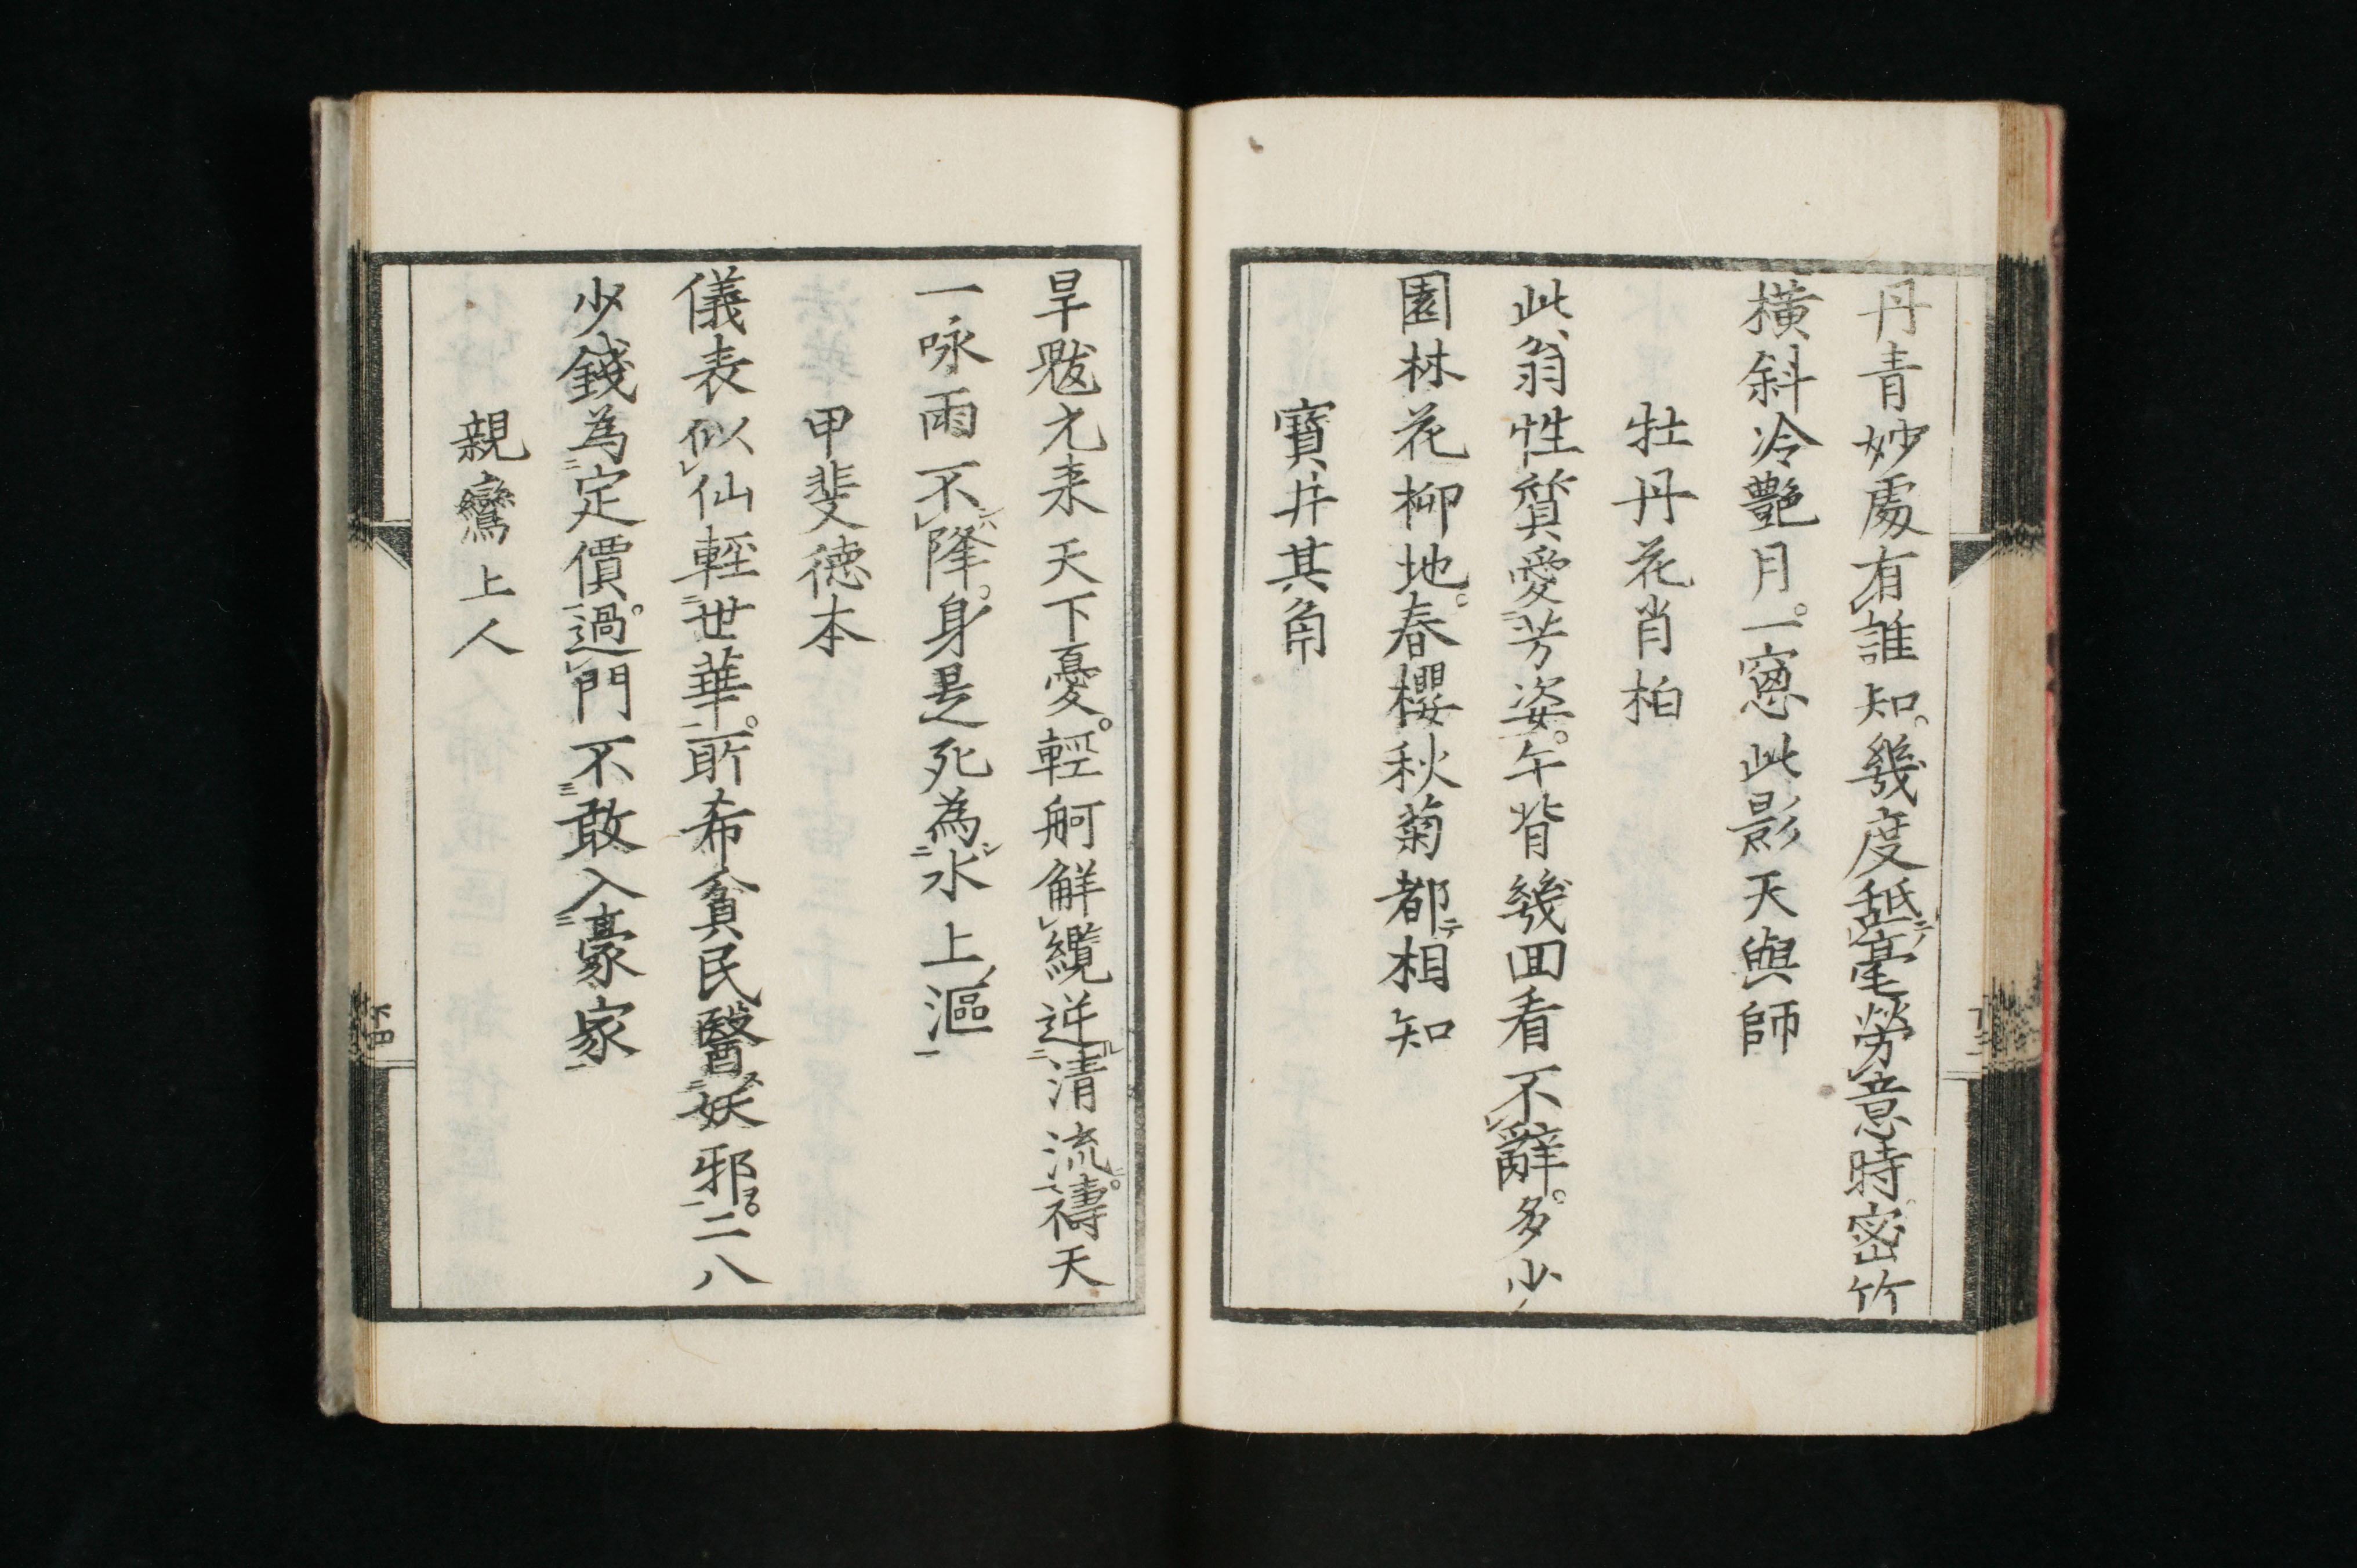 丹青妙處有誰知。幾度舐毫勞意時。密竹
橫斜冷艷月。一窓此影天與師
牡丹花肖柏
此翁性質愛芳姿。午背幾回看不辭。多少
園林花柳地。春櫻秋菊都テ相知
寶井其角
旱魃尤来天下憂。輕舸觧纜逆清流。禱天
一咏雨不降。身是死為水上漚
甲斐德本
儀表似仙輕世華。所希貧民醫妖邪。二八
少錢為定價。過門不敢入豪家
親鸞上人